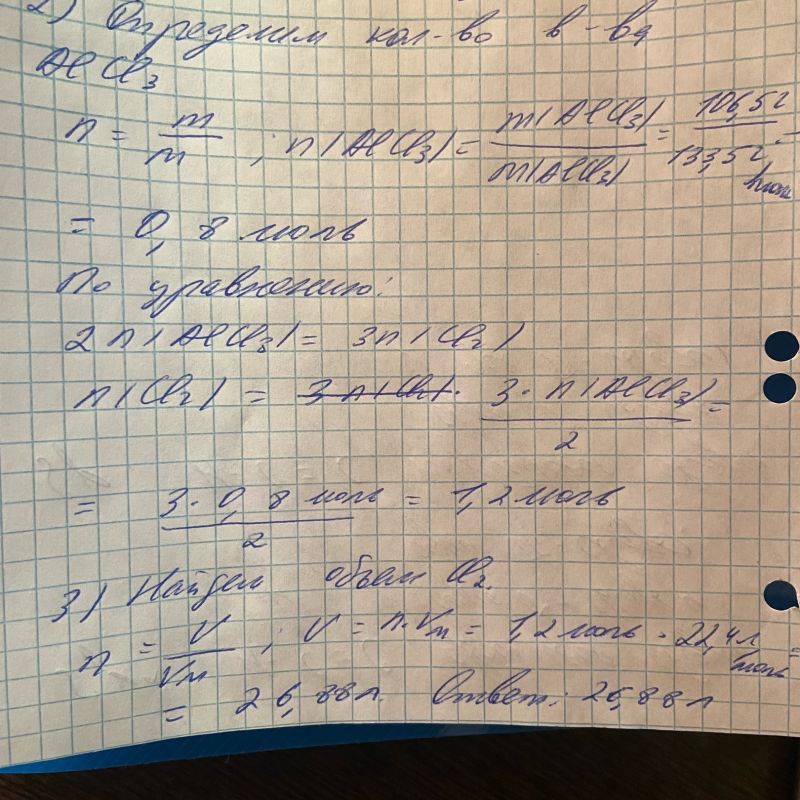 2) Определим кол-во в-ва
AlCl₃
n = m/m ; n(AlCl₃) = m(AlCl₃)/M(AlCl₃) = 106,5г/133,5г/моль =
= 0,8 моль
По уравнению:
2n(AlCl₃) = 3n(Cl₂)
n(Cl₂) = 3 n(Cl₂). 3·n(AlCl₃)/2 =
= 3·0,8 моль/2 = 1,2 моль
3) Найдем объем Cl₂.
n = V/Vм ; V = n·Vм = 1,2 моль · 22,4 л/моль =
= 26,88 л. Ответ: 26,88 л